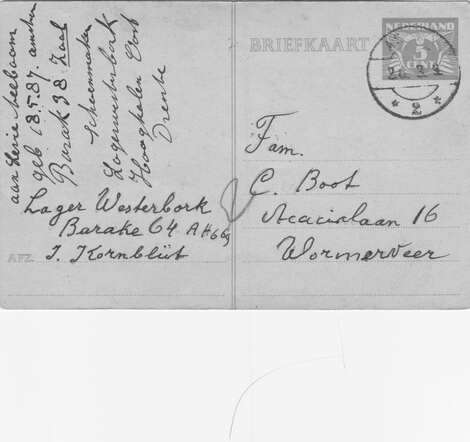 aan Levie Seelboom
geb 18.5.87. amsterdam
Barak 38 Zaal
Schoenmaker
Lagerwesterbork
Hooghalen Oost
Drente
Lager Westerbork
Barake 64.
AFZ. I. Kornblüt
BRIEFKAART
NEDERLAND
5
CENT
2
Fam.
C. Boot
Acacialaan 16
Wormerveer